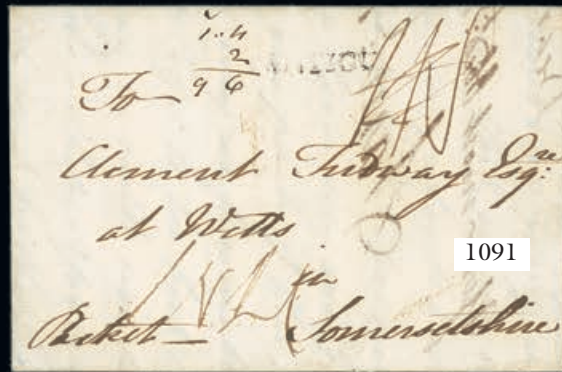 2
9 6
To
Clement Tudway Esqre:
at Wells
1091
in
Packet — Somersetshire